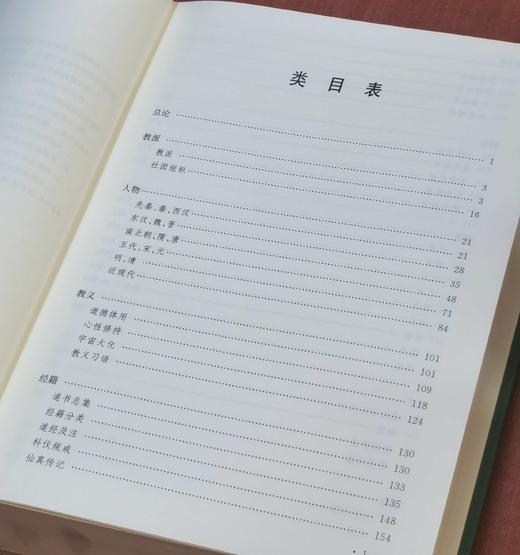 类目表
总论 …… 1
教派 …… 3
教派 …… 3
社团组织 …… 16
人物 …… 21
先秦、秦、西汉 …… 21
东汉、魏、晋 …… 28
南北朝、隋、唐 …… 35
五代、宋、元 …… 48
明、清 …… 71
近现代 …… 84
教义 …… 101
道德体用 …… 101
心性修持 …… 109
宇宙大化 …… 118
教义习语 …… 124
经籍 …… 130
道书总集 …… 130
经籍分类 …… 133
道经及注 …… 135
科仪规戒 …… 148
仙真传记 …… 154